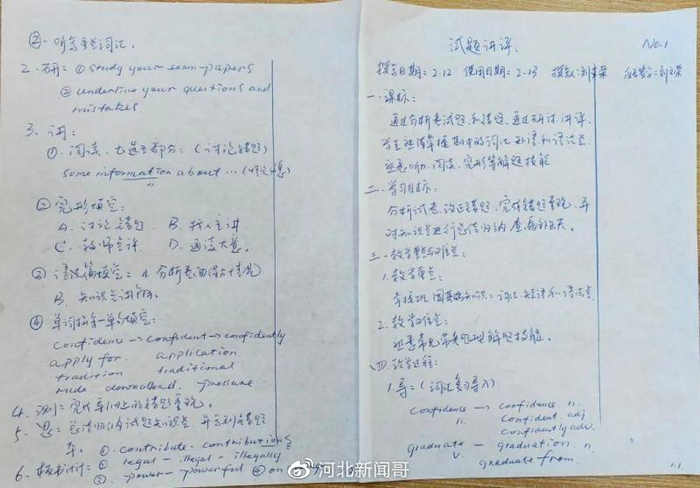 试题讲评:
No.1
撰写日期:2.12 使用日期:2.13 撰写人:
一.课标:
通过分析考试题和错题,通过研讨、讲评,
学生能够掌握期中的词汇、短语和语法点,
熟悉听力、阅读、完形等解题技能
二.学习目标:
分析试卷,改正错题,完成错题重现,并
对知识点进行总结归纳,查漏补缺
三.教学重点与难点:
1.教学重点:
掌握巩固基础知识:词汇、短语和语法点
2.教学难点:
熟悉常见常考题型解题技能。
四.教学过程:
1.导:(词汇复习导入)
confidence → confidence n.
n. confident. adj
confidently adv.
graduate — graduation. n.
v. graduate from
②.听写重点词汇。
2.研:① study your exam-papers
② underline your questions and
mistakes.
3.讲:
①.阅读、七选五部分:(讨论错题)
some information about...
②完形填空:
A.讨论错题 B.找人主讲
C.教师点评 D.通读大意。
③语法填空:A 分析卷面得分情况
B.知识点讲解。
④单词拼写—单句填空:
confidence → confident → confidently
apply for. application
tradition traditional
rude download. pressure
4.测:完成导测上的错题重现。
5.思:总结归纳试题知识点,并
①.contribute - contributions
6.板书设计:② legal - illegal - illegally
③.power - powerful ④ on
河北新闻哥